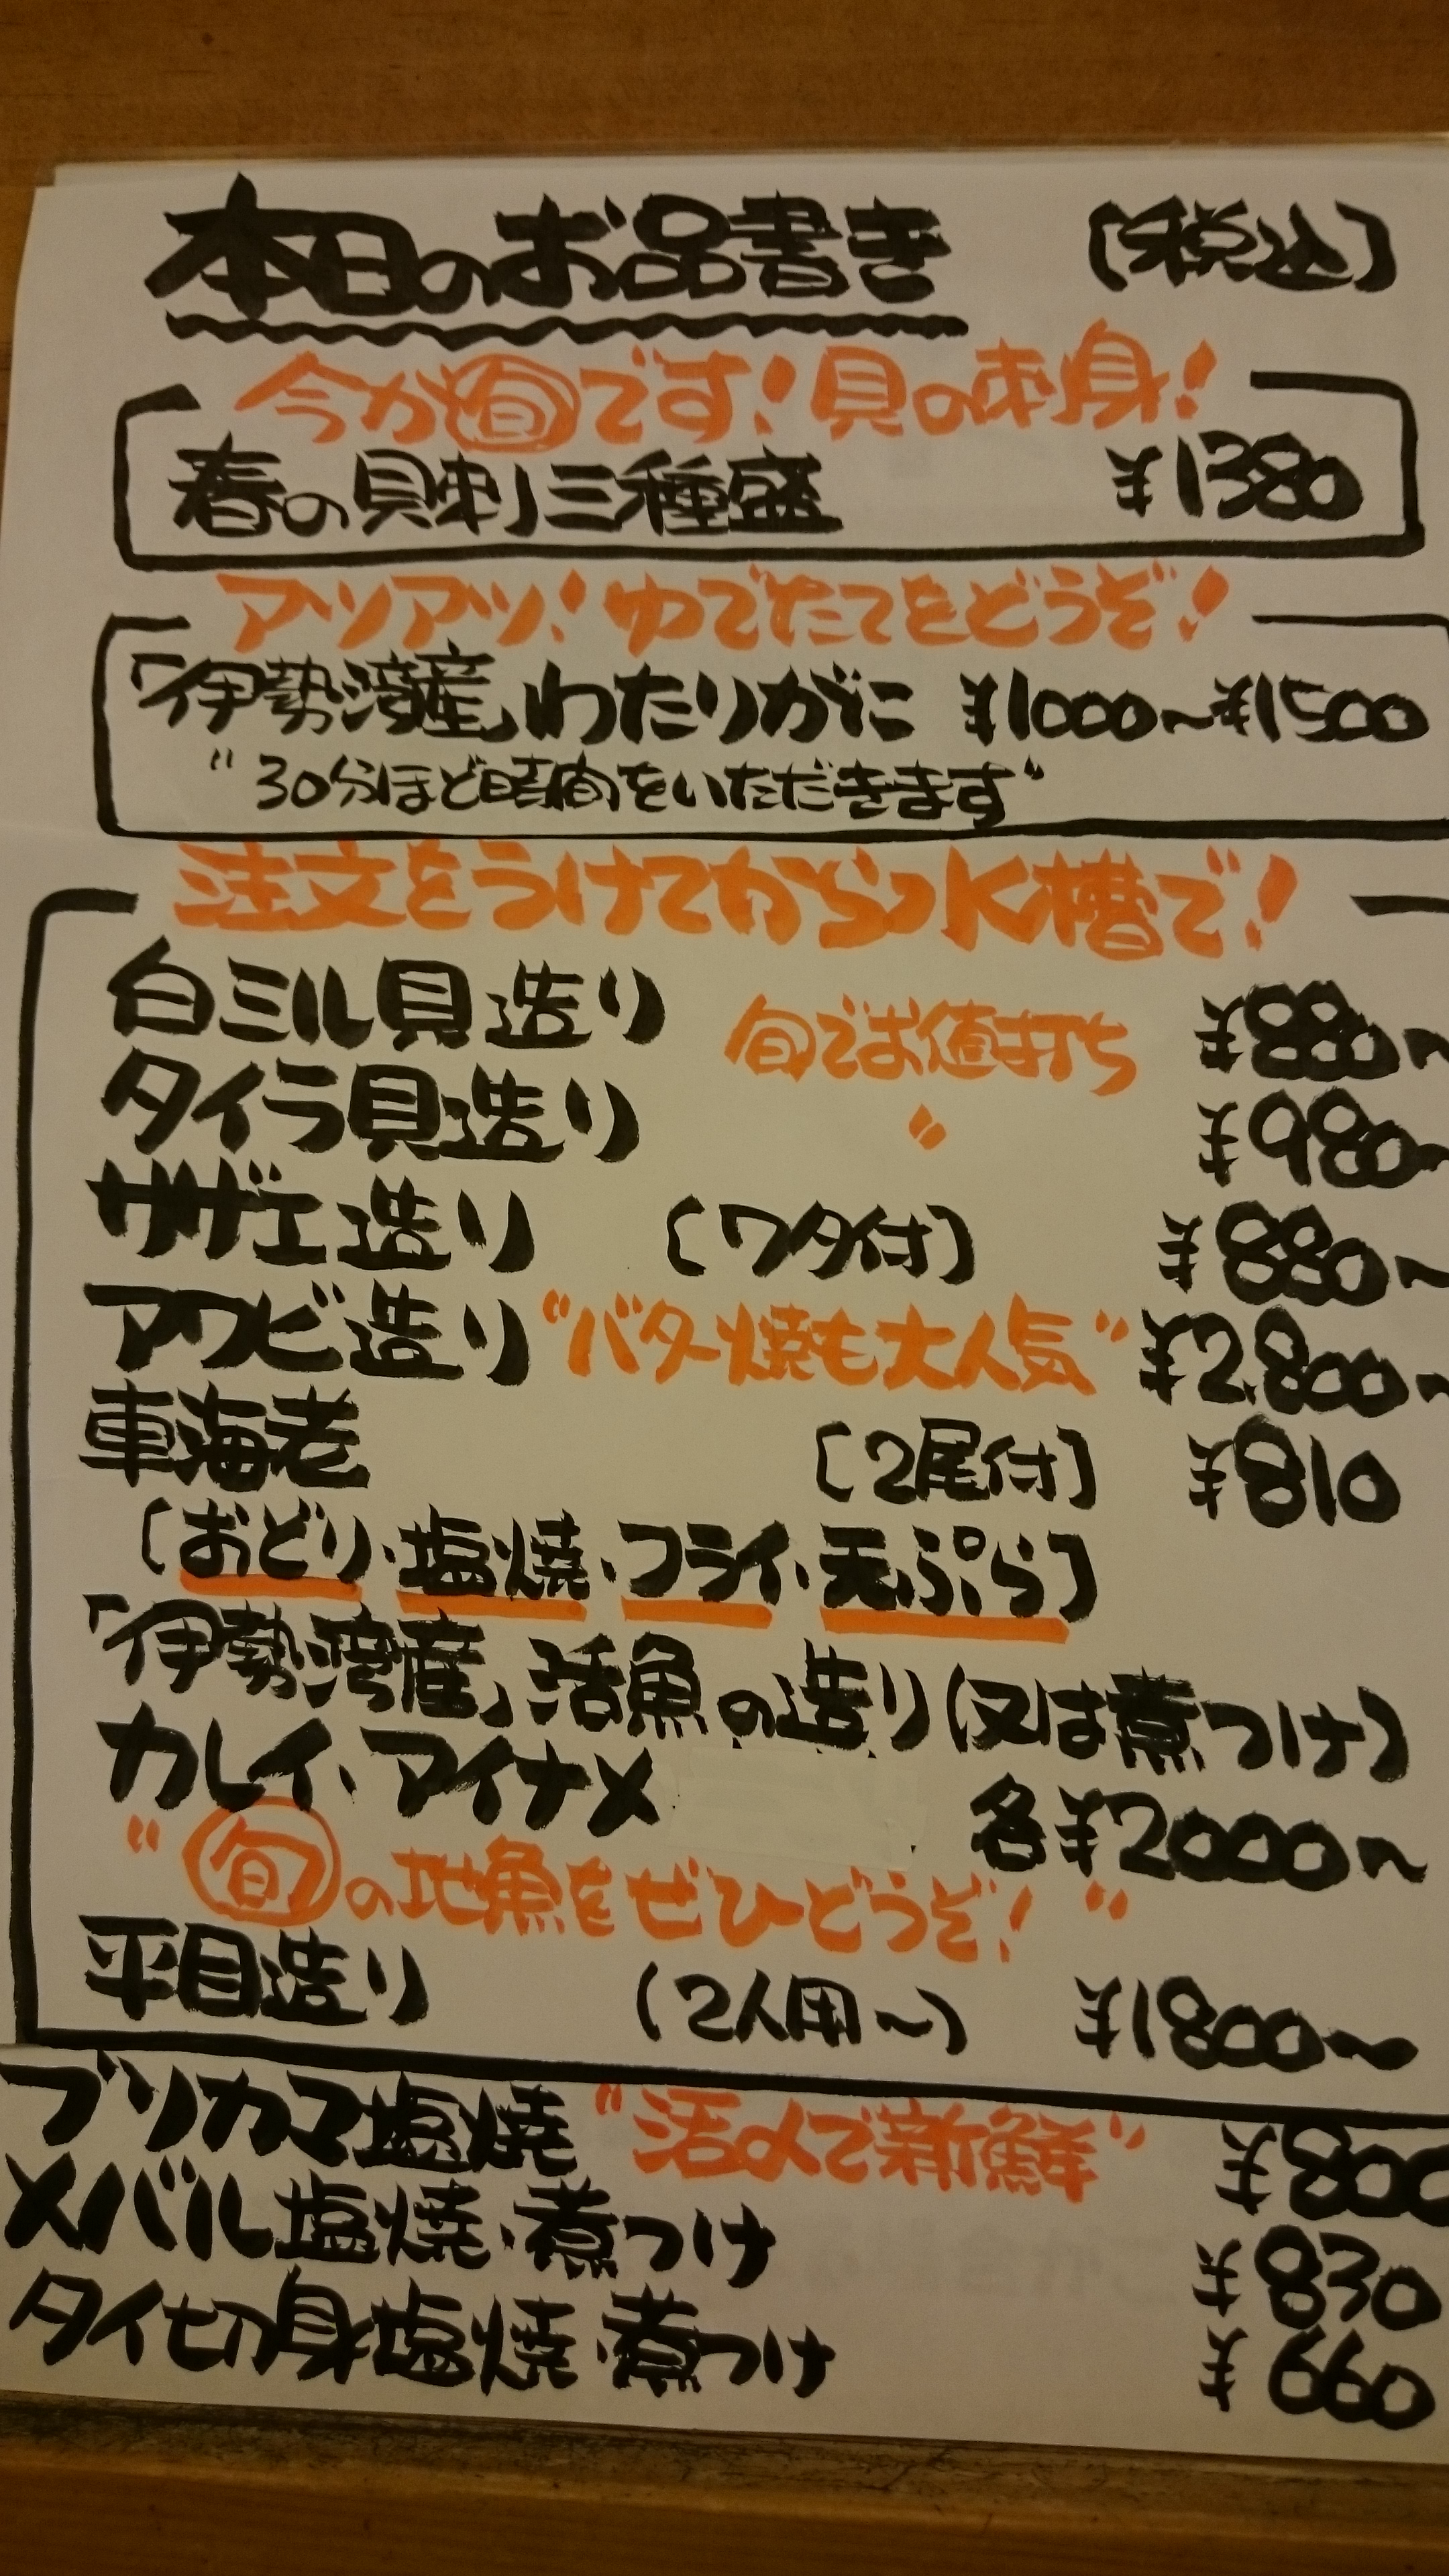 本日のお品書き 〔税込〕
今が旬です!貝の刺身!
春の貝刺三種盛 ¥1380
アツアツ!ゆでたてをどうぞ!
「伊勢湾産」わたりがに ¥1000~¥1500
"30分ほど時間をいただきます"
注文をうけてから水槽で!
白ミル貝造り ¥880~
旬でお値打ち
タイラ貝造り ¥980~
〃
サザエ造り 〔ワタ付〕 ¥880~
アワビ造り "バター焼も大人気" ¥2,800~
車海老 〔2尾付〕 ¥810
〔おどり・塩焼・フライ・天ぷら〕
「伊勢湾産」活魚の造り(又は煮つけ)
カレイ、アイナメ 各¥2000~
"旬の地魚をぜひどうぞ!"
平目造り (2人用~) ¥1800~
ブリカマ塩焼 "活〆で新鮮" ¥800
メバル塩焼・煮つけ ¥830
タイ切身塩焼・煮つけ ¥660